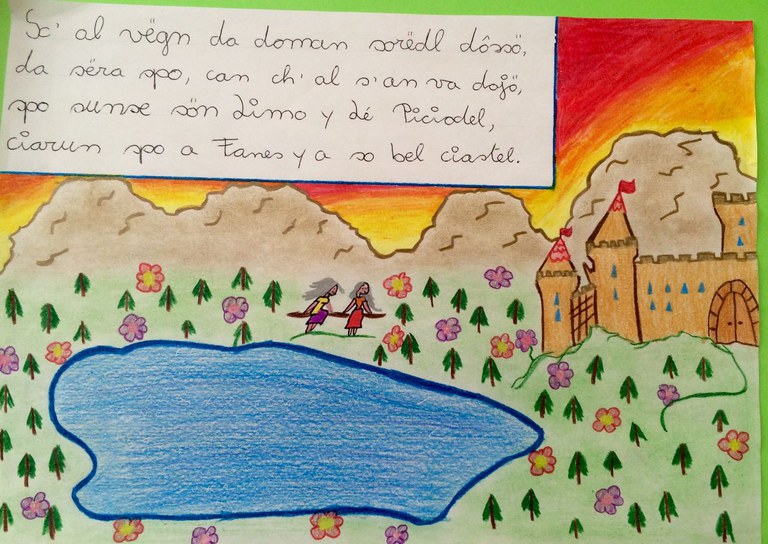 Sc' al vëgn da doman sorëdl dôssö,
da sëra spo, can ch' al s'an va dojö,
spo sunse sön Limo y dé Piciodel,
ciarun spo a Fanes y a so bel ciastel.